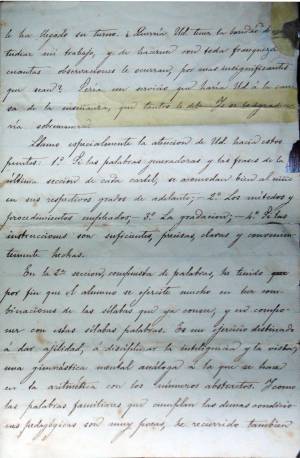 le ha llegado su turno. ¿Querría Ud. tener la bondad de es-
tudiar mi trabajo, y de hacerme con toda franqueza
cuantas observaciones le ocurran, por mas insignificantes
que sean? Sería un servicio que haría Ud. á la cau-
sa de la enseñanza, que tanto le debe. Yo se lo agradece-
ría sobremanera.
Llamo especialmente la atencion de Ud. hacia estos
puntos: 1º Si las palabras generadoras y las frases de la
última seccion de cada cartel, se acomodan bien al niño
en sus respectivos grados de adelanto; – 2º Los métodos y
procedimientos empleados; 3º La gradacion; – 4º Si las
instrucciones son suficientes, precisas, claras y convenien-
temente hechas.
En la 2ª seccion, compuesta de palabras, he tenido
por fin que el alumno se ejercite mucho en las com-
binaciones de las sílabas que ya conoce, y en compo-
ner con estas sílabas palabras. Es un ejercicio destinado
á dar agilidad, á disciplinar la inteligencia y la vista;
una gimnástica mental análoga á la que se hace
en la aritmética con los números abstractos. Y como
las palabras familiares que cumplan las demas condicio-
nes pedagógicas son muy pocas, he recurrido tambien